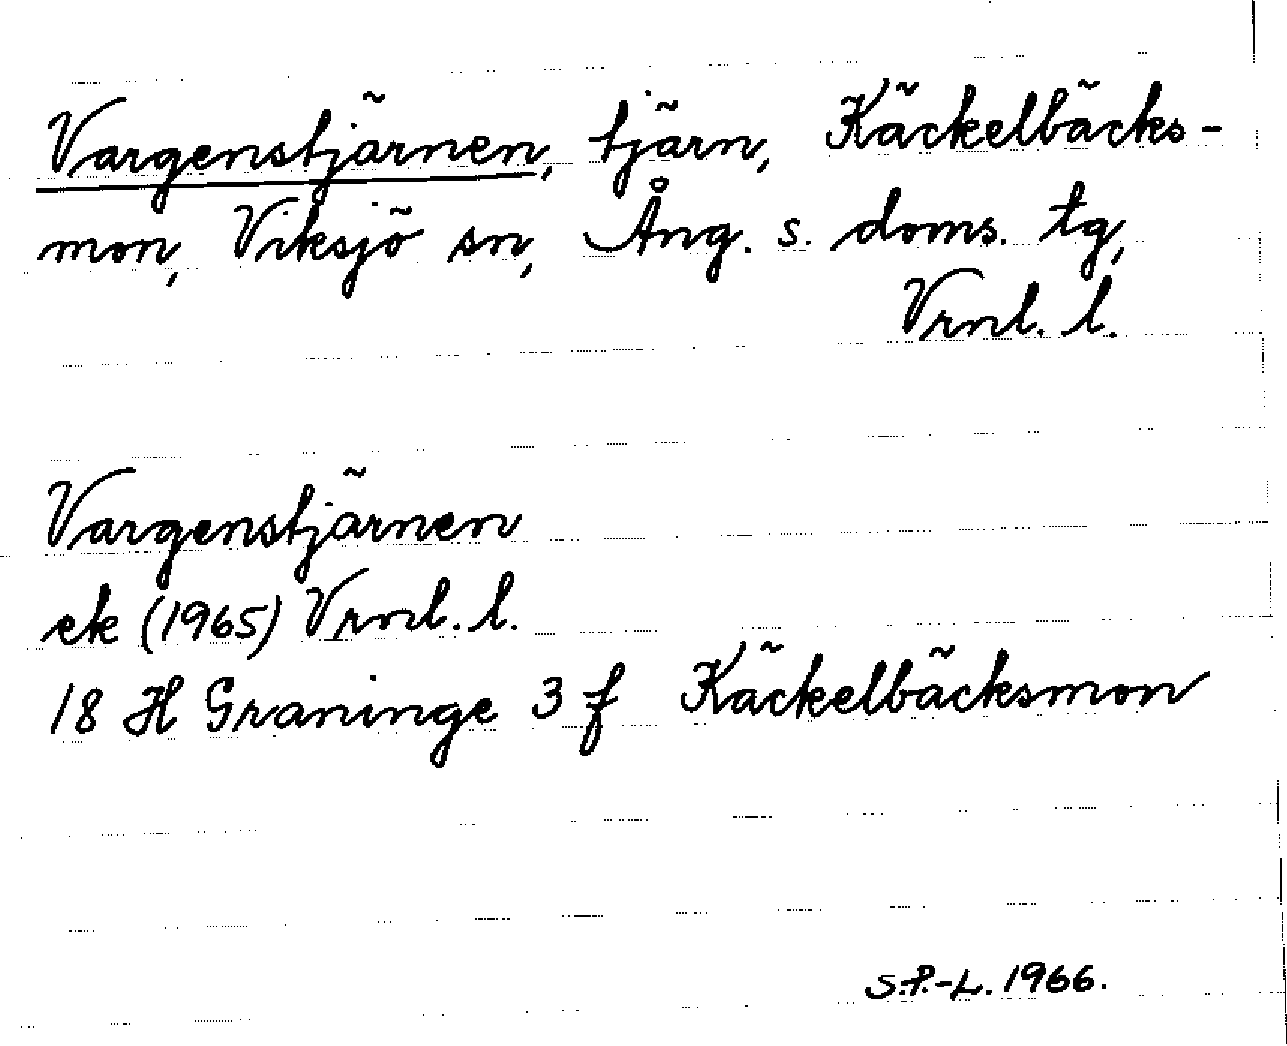 Vargenstjärnen, tjärn, Käckelbäcks-
mon, Viksjö sn, Ång. s. doms. tg,
Vrnl. l.
Vargenstjärnen
ek (1965) Vrnl. l.
18 H Graninge 3 f Käckelbäcksmon
S.P.-L. 1966.